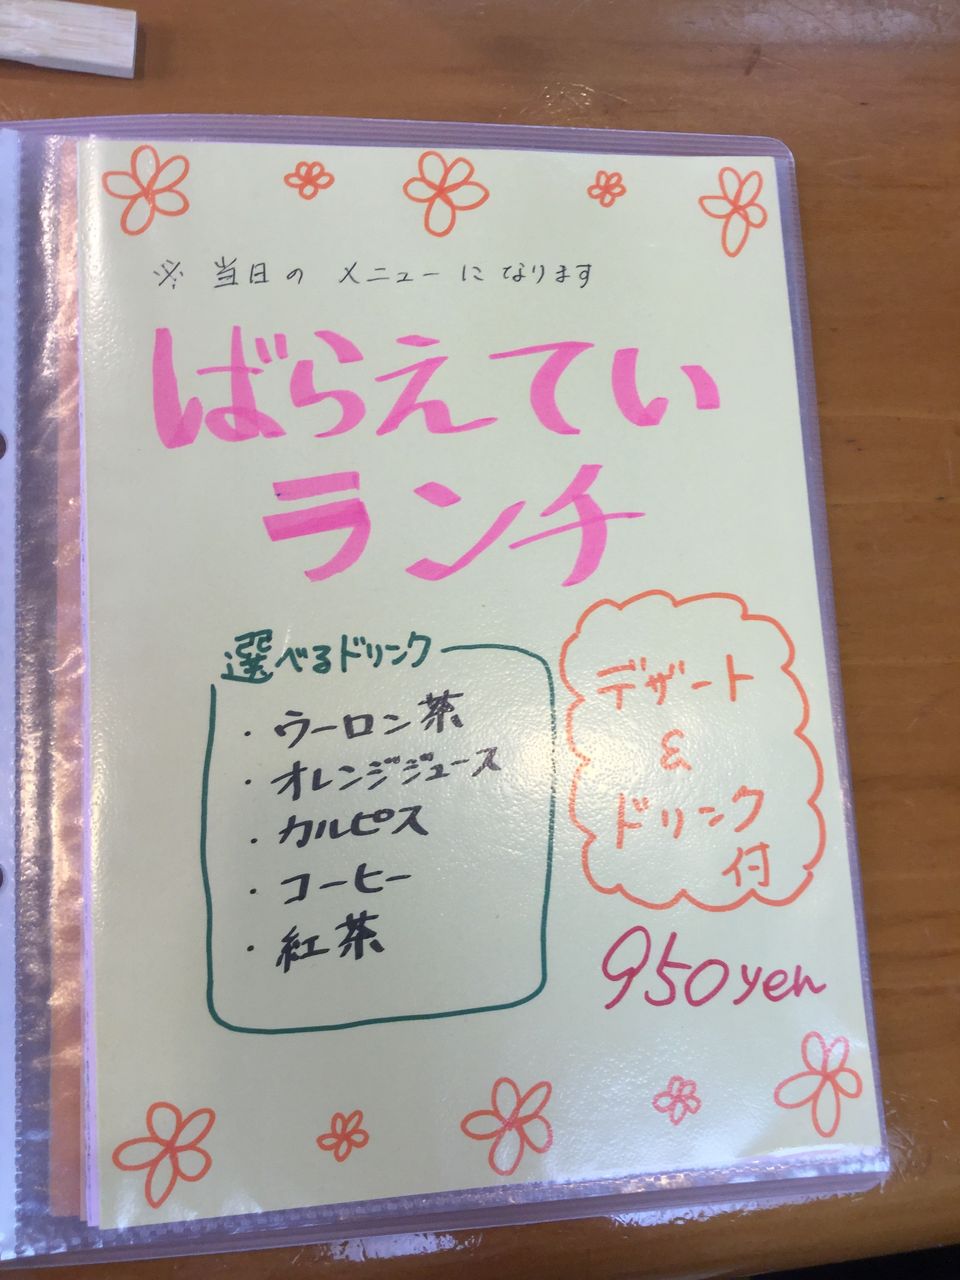 ※ 当日の メニューになります
ばらえてい
ランチ
選べるドリンク
・ウーロン茶
・オレンジジュース
・カルピス
・コーヒー
・紅茶
デザート
&
ドリンク
付
950yen